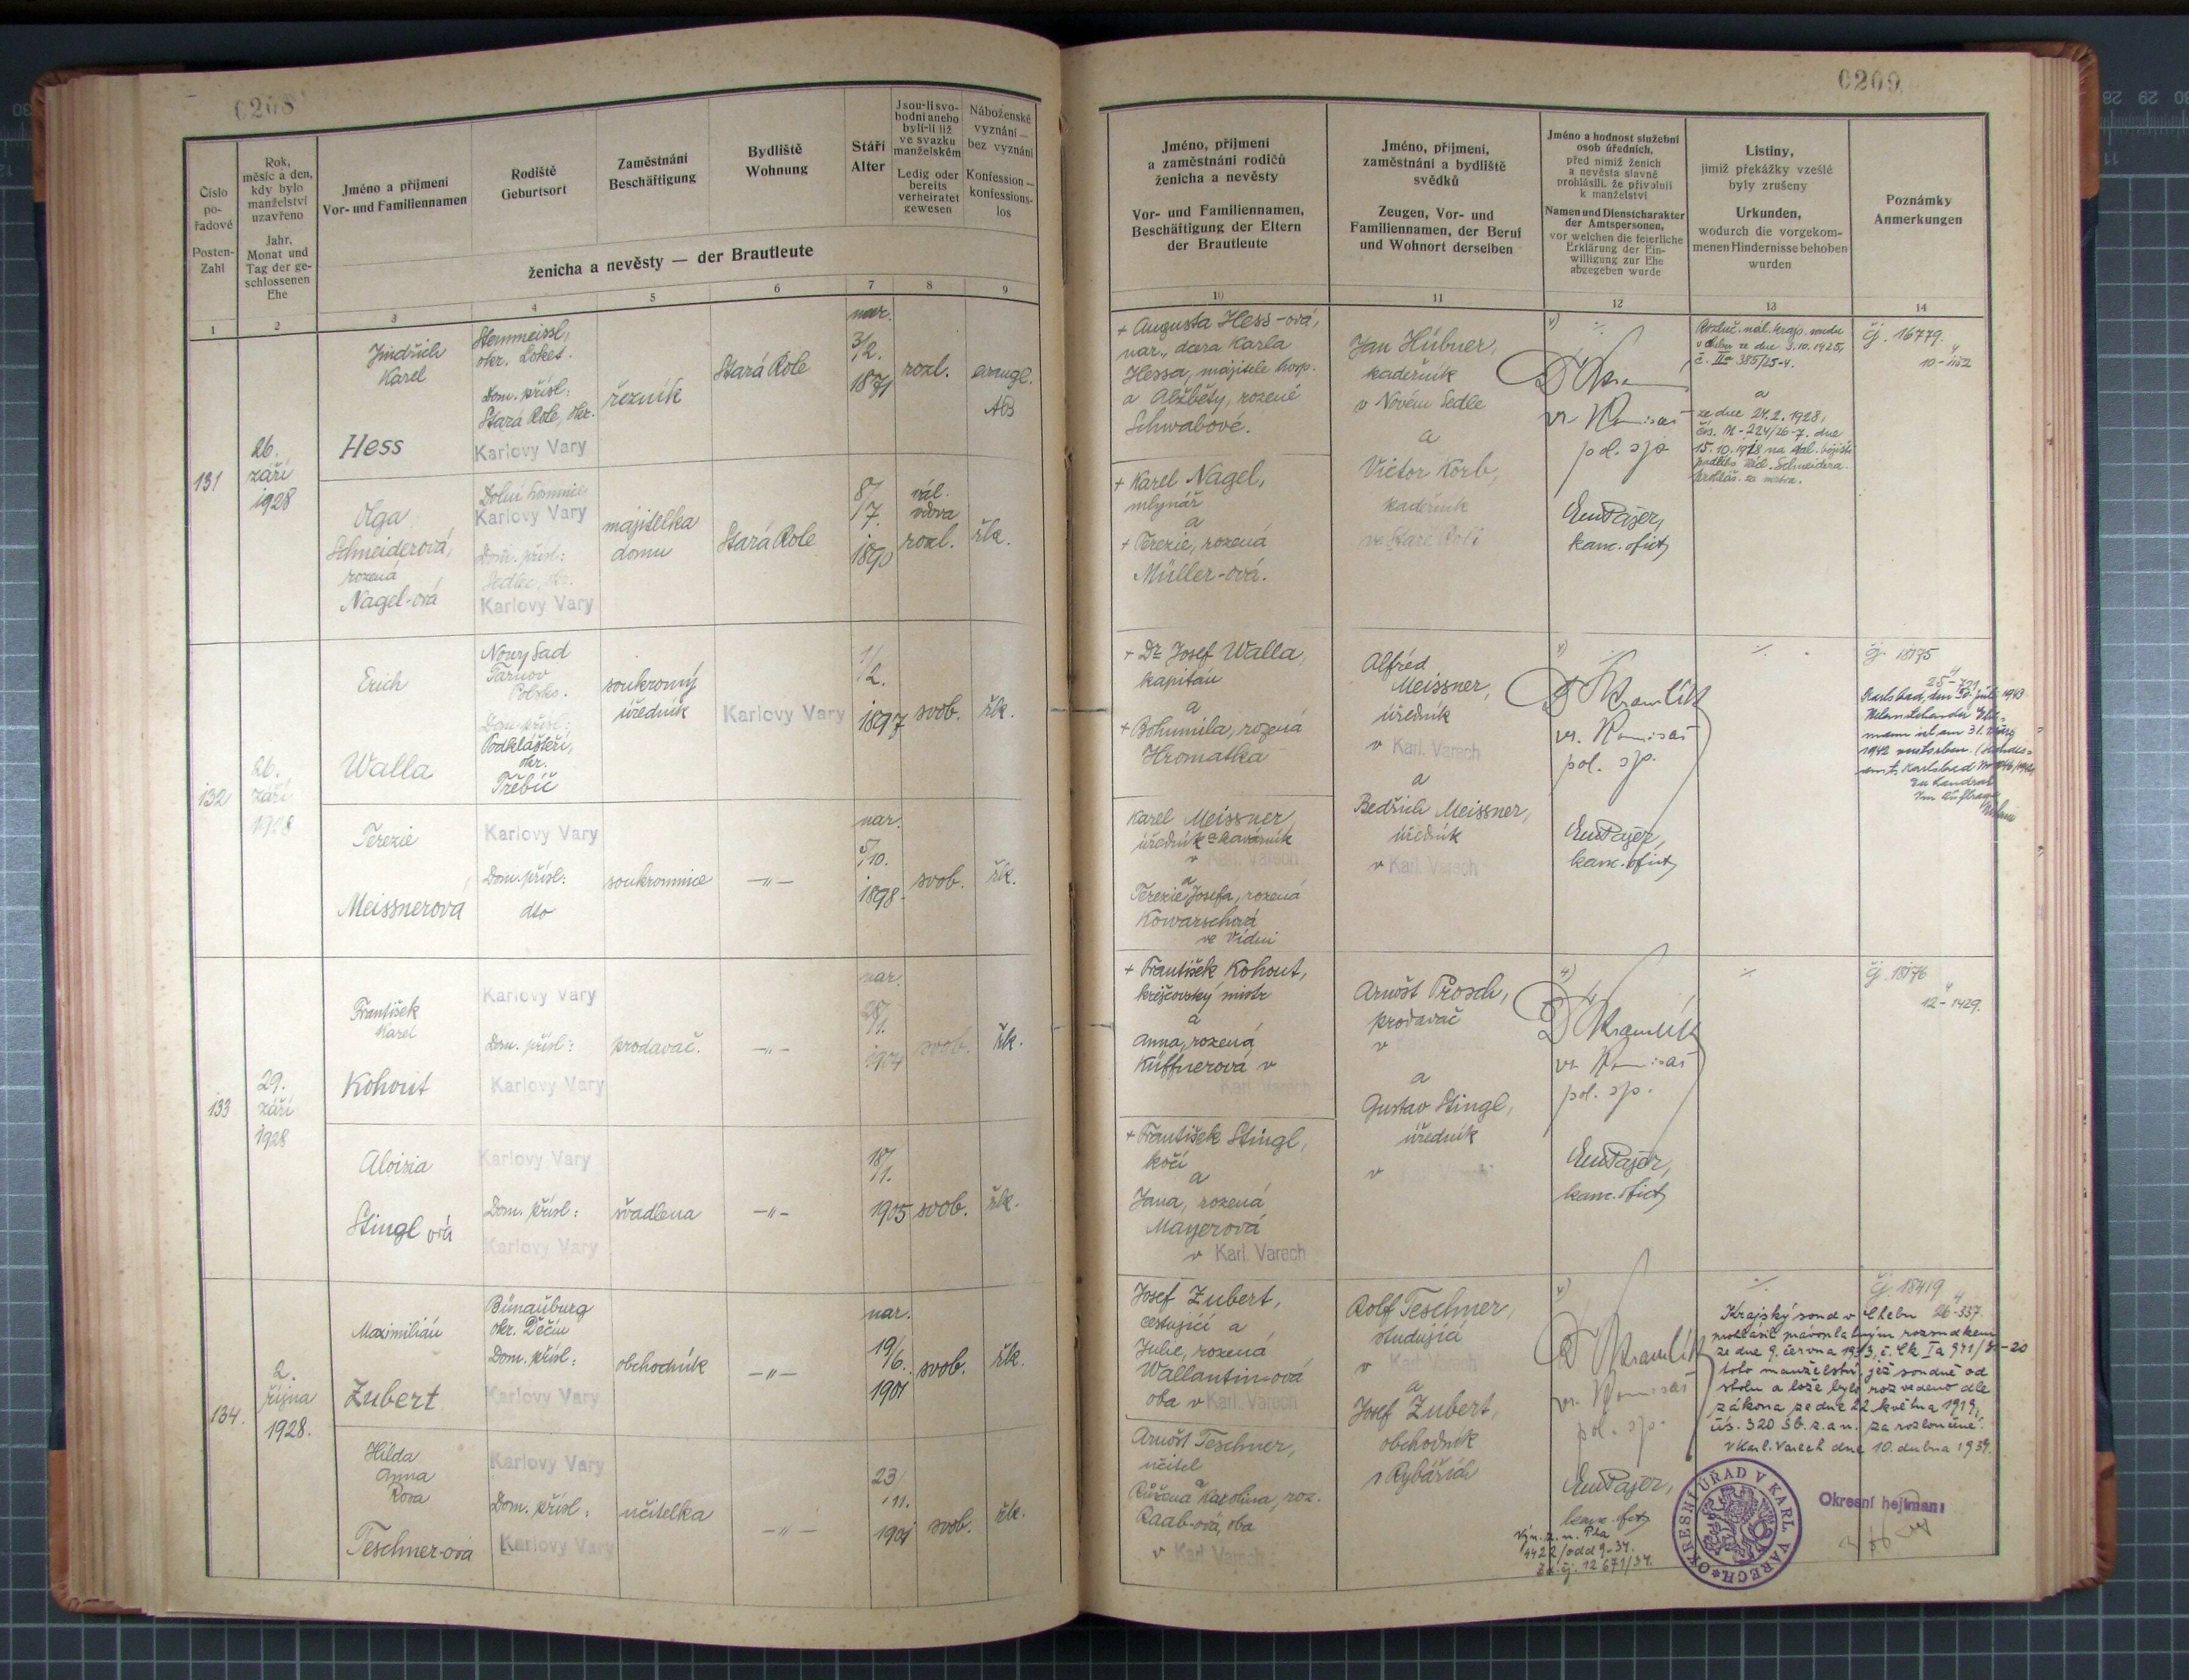 0208
Číslo
po-
řadové
Posten-
Zahl
Rok,
měsíc a den,
kdy bylo
manželství
uzavřeno
Jahr,
Monat und
Tag der ge-
schlossenen
Ehe
Jméno a příjmení
Vor- und Familiennamen
Rodiště
Geburtsort
Zaměstnání
Beschäftigung
Bydliště
Wohnung
Stáří
Alter
Jsou-li svo-
bodni anebo
byli-li již
ve svazku
manželském
Ledig oder
bereits
verheiratet
gewesen
Náboženské
vyznání —
bez vyznání
Konfession —
konfessions-
los
ženicha a nevěsty — der Brautleute
1
2
3
4
5
6
7
8
9
131
26.
září
1928
Jindřich
Karel
Hess
Stemmeissl,
okr. Loket.
Dom. přísl:
Stará Role, okr.
Karlovy Vary
řezník
Stará Role
nar.
3/2.
1871
rozl.
evangl.
AB
Olga
Schneiderová,
rozená
Nagel-ová
Dolní Kamenice
Karlovy Vary
Dom. přísl:
Sedlec, okr.
Karlovy Vary
majitelka
domu
Stará Role
8/7.
1890
vál.
vdova
rozl.
řk.
132
26.
září
1928
Erich
Walla
Nowy Sad
Tarnov
Polsko.
Dom. přísl:
Podklášteří,
okr.
Třebíč
soukromý
úředník
Karlovy Vary
1/2.
1897
svob.
řk.
Terezie
Meissnerova
Karlovy Vary
Dom. přísl:
dto
soukromnice
—„—
nar.
5/10.
1898
svob.
řk.
133
29.
září
1928
František
Karel
Kohout
Karlovy Vary
Dom. přísl:
Karlovy Vary
prodavač.
—„—
nar.
28/1.
1904
svob.
řk.
Aloisia
Stingl ová
Karlovy Vary
Dom. přísl:
Karlovy Vary
švadlena
—„—
18/1.
1905
svob.
řk.
134.
2.
října
1928.
Maximilián
Zubert
Bünauburg
okr. Děčín
Dom. přísl:
Karlovy Vary
obchodník
—„—
nar.
19/6.
1901
svob.
řk.
Hilda
Anna
Rosa
Teschner-ová
Karlovy Vary
Dom. přísl:
Karlovy Vary
učitelka
—„—
23/11.
svob.
řk.
0209
Jméno, příjmení
a zaměstnání rodičů
ženicha a nevěsty
Vor- und Familiennamen,
Beschäftigung der Eltern
der Brautleute
Jméno, příjmení,
zaměstnání a bydliště
svědků
Zeugen, Vor- und
Familiennamen, der Beruf
und Wohnort derselben
Jméno a hodnost služební
osob úředních,
před nimiž ženich
a nevěsta slavně
prohlásili, že přivolují
k manželství
Namen und Dienstcharakter
der Amtspersonen,
vor welchen die feierliche
Erklärung der Ein-
willigung zur Ehe
abgegeben wurde
Listiny,
jimiž překážky vzešlé
byly zrušeny
Urkunden,
wodurch die vorgekom-
menen Hindernisse behoben
wurden
Poznámky
Anmerkungen
10
11
12
13
14
+ Augusta Hess-ová,
nar., dcera Karla
Hessa, majitele hosp.
a Alžběty, rozené
Schwabové.
Jan Hübner,
kadeřník
v Novém Sedle
a
Victor Korb,
kadeřník
ve Staré Roli
pol. spr.
Em Pajer,
kanc. ofict
Rozluč. nál. krajs. soudu
v Chebu ze dne 3.10.1925,
385/25-4.
a
ze dne 24.2.1928,
224/26-7. dne
15.10.1918 na ital. bojišti
Schneidera
čj. 16779.
+ Karel Nagel,
mlynář
a
+ Terezie, rozená
Müller-ová.
+ Dr. Josef Walla,
kapitán
a
+ Bohumila, rozená
Hromatka
Alfréd
Meissner,
úředník
v Karl. Varech
a
Bedřich Meissner,
úředník
v Karl. Varech
Dr Kramlík
vr. Komisař
pol. spr.
Em Pajer,
kanc. ofict
čj. 18175
Karlsbad, den 30. Juli 1943
Nebenstehender Ehe-
mann ist am 31. März
1942 verstorben. (Standes-
amt Karlsbad
Der Landrat
Im Auftrage
Karel Meissner,
úředník
v Karl. Varech
a
Terezie Josefa, rozená
Kowarschová
ve Vídni
+ František Kohout,
krejčovský mistr
a
Anna, rozená
Küffnerová v
Karl. Varech
Arnošt Prosch,
prodavač
v
a
Gustav Stingl,
úředník
v Karl. Varech
Dr Kramlík
vr. Komisař
pol. spr.
Em Pajer,
kanc. ofict
čj. 18176
12-1429.
+ František Stingl,
kočí
a
Jana, rozená
Mayerová
v Karl. Varech
Josef Zubert,
cestující a
Julie, rozená
Wallantin-ová
oba v Karl. Varech
Rolf Teschner,
studující
v Karl. Varech
a
Josef Zubert,
obchodník
v Rybářích
Dr Kramlík
vr. Komisař
pol. spr.
Em Pajer,
kanc. ofict
čj. 18419
26-337.
Krajský soud v Chebu
prohlásil pravoplatným rozsudkem
ze dne 9. června 1933, č. Ck Ia 971/31-20
toto manželství, jež soudně od
stolu a lože bylo rozvedeno dle
zákona ze dne 22. května 1919,
čís. 320 Sb. z. a n. za rozloučené.
V Karl. Varech dne 10. dubna 1934.
Arnošt Teschner,
učitel
a
Růžena Karolina, roz.
Raab-ová, oba
v Karl. Varech
4422/odd 9-34.
čj. 12671/34.
OKRESNÍ ÚŘAD V KARL. VARECH
Okresní hejtman: